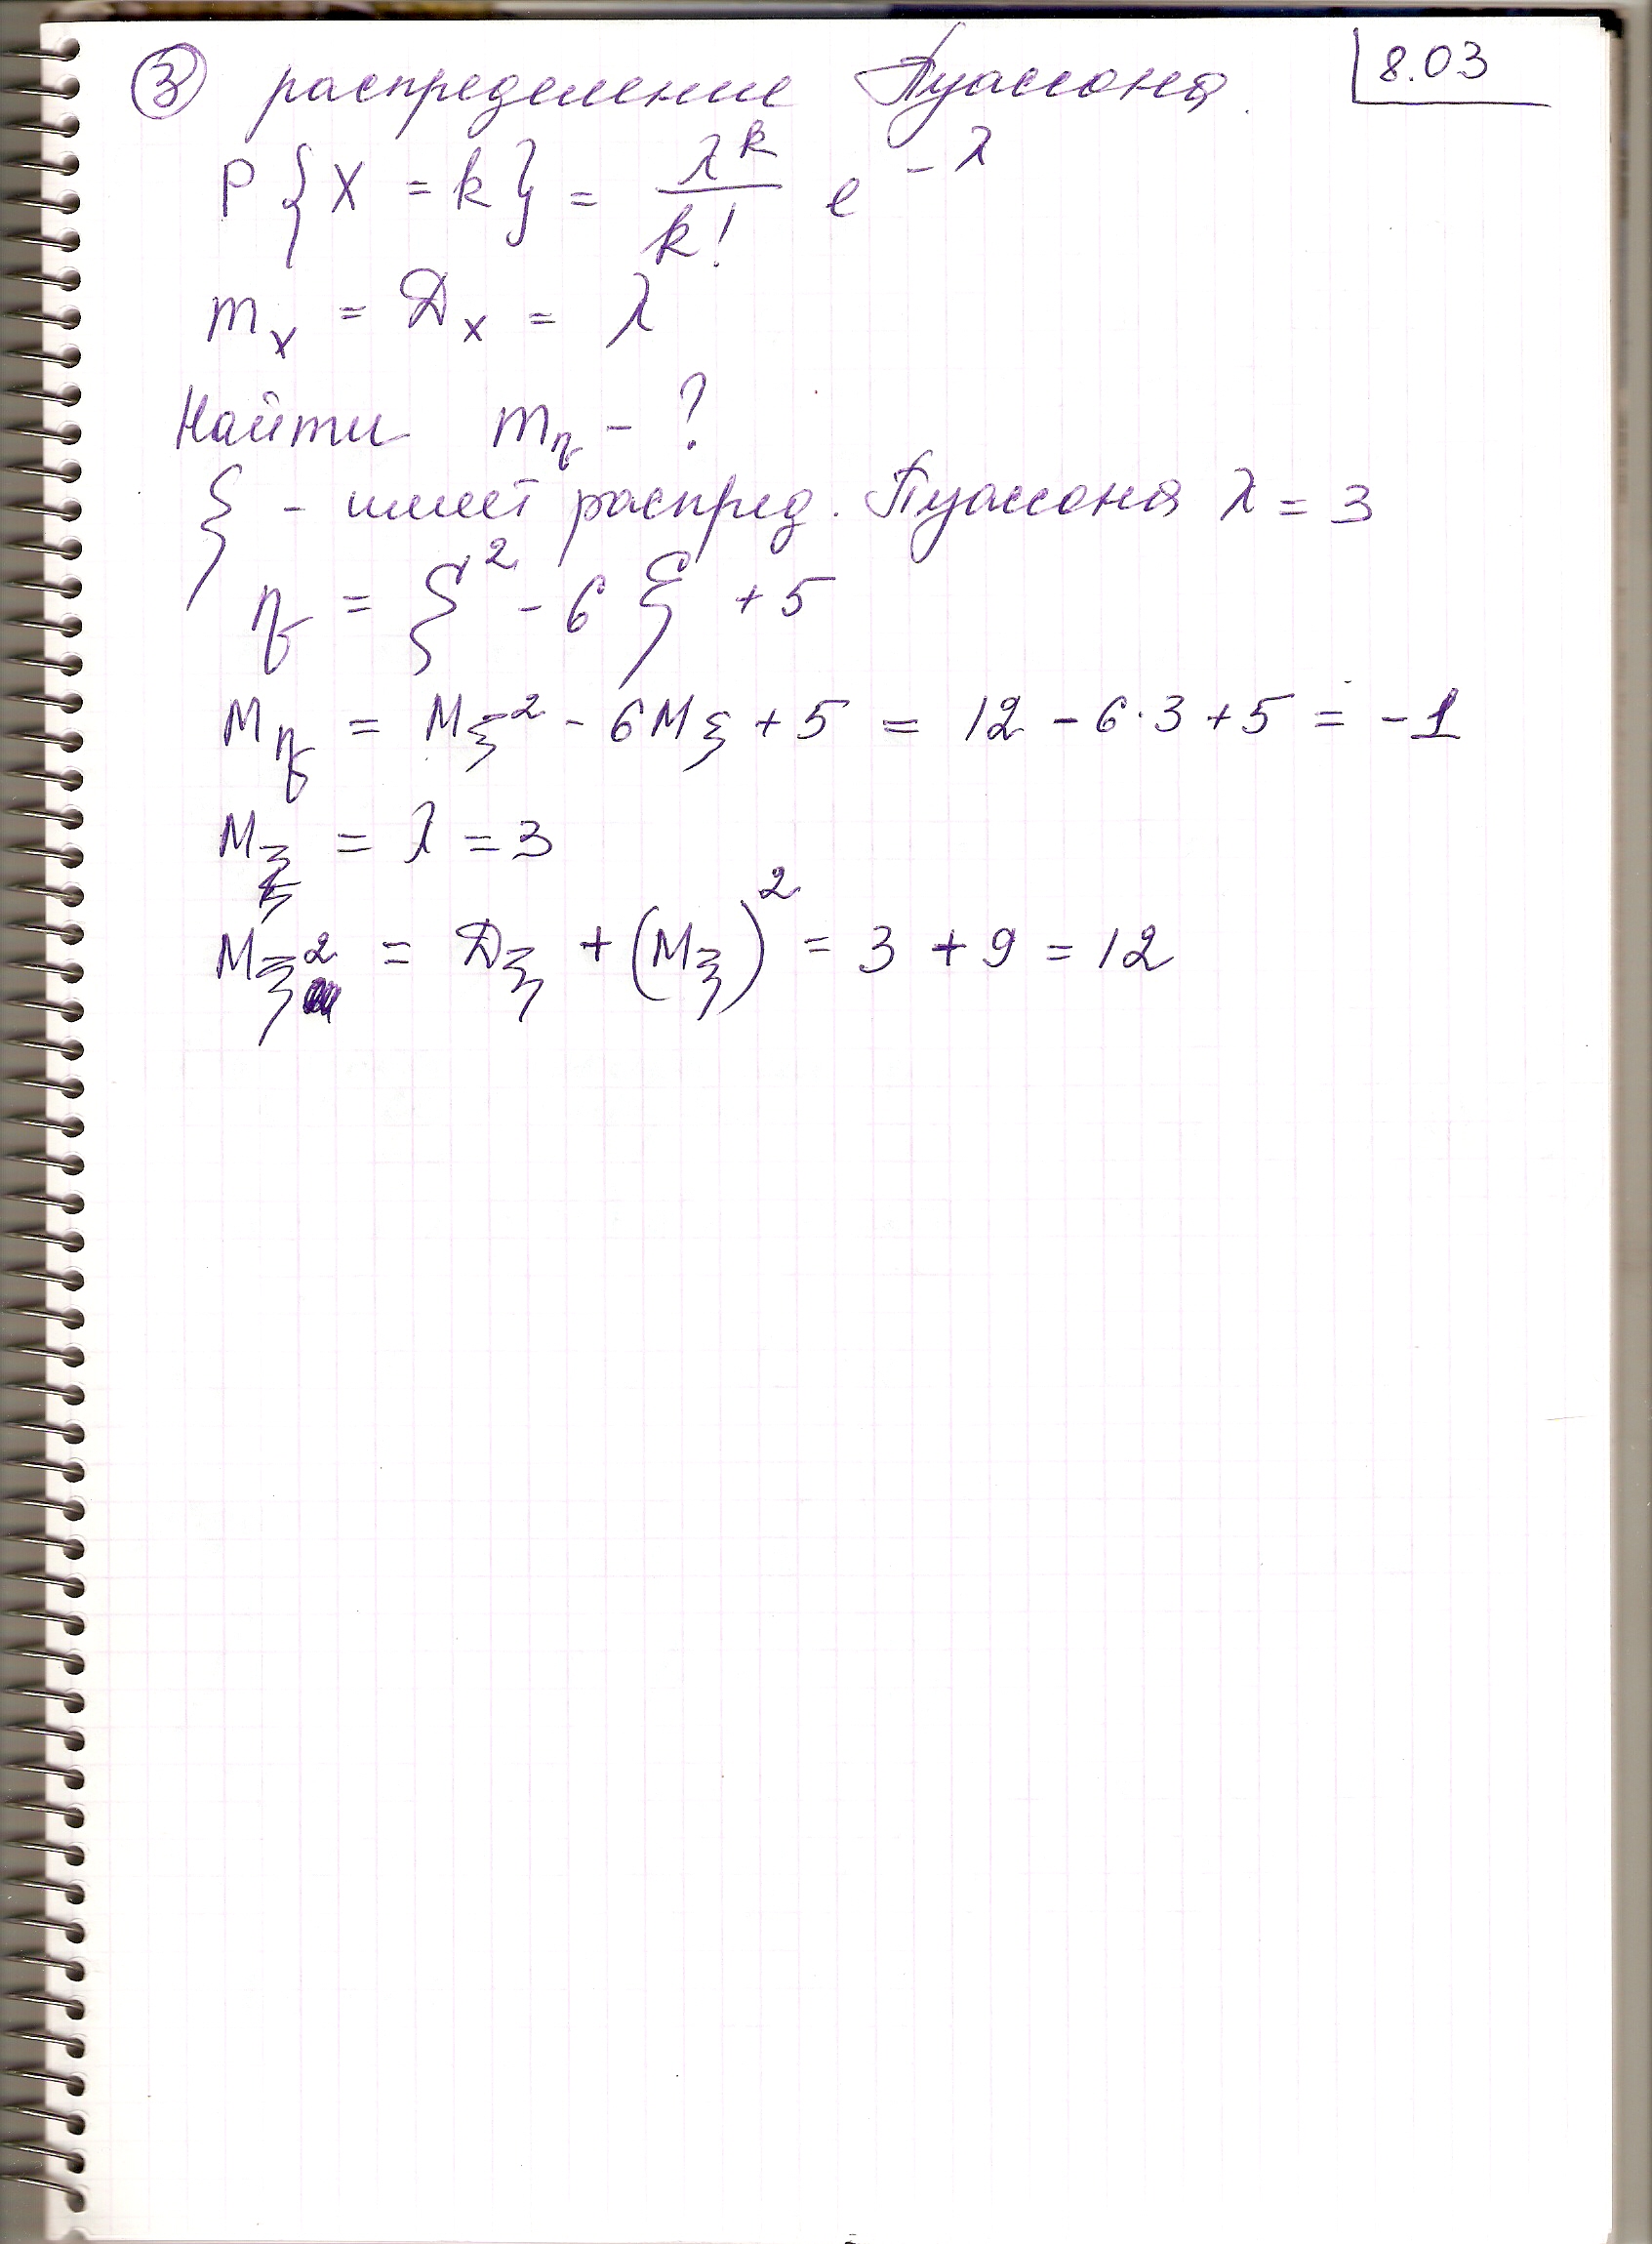 ③ распределение Пуассона. 8.03
P{X = k} = λ^k / k! e^(-λ)
m_x = Д_x = λ
Найти m_η - ?
ξ - имеет распред. Пуассона λ = 3
η = ξ² - 6ξ + 5
M_η = M_ξ² - 6M_ξ + 5 = 12 - 6·3 + 5 = -1
M_ξ = λ = 3
M_ξ² = Д_ξ + (M_ξ)² = 3 + 9 = 12